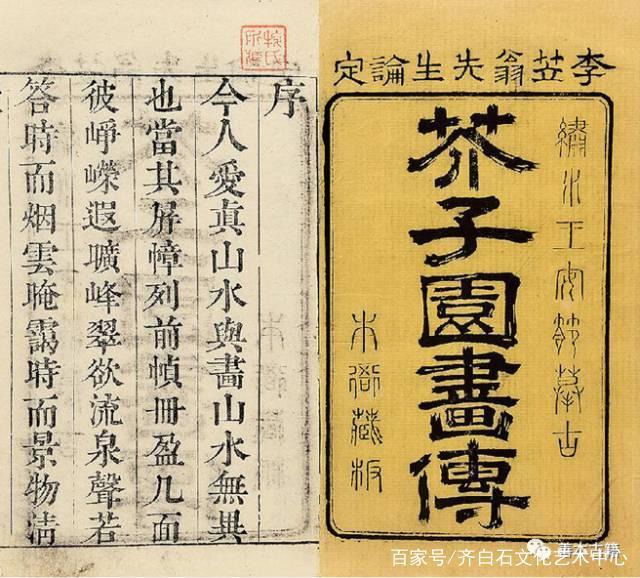 李笠翁先生論定
繡水王安節摹古
芥子園畫傳
本衙藏板
序
今人愛真山水與畫山水無異
也當其屏幛列前幀冊盈几面
彼崢嶸遐曠峰翠欲流泉聲若
答時而烟雲晻靄時而景物清
善本古籍
百家号/齐白石文化艺术中心